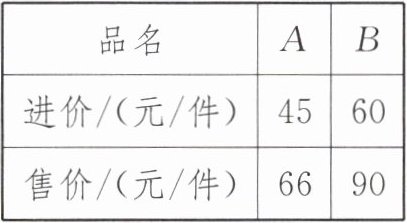 品名 A B
进价/(元/件) 45 60
售价/(元/件) 66 90